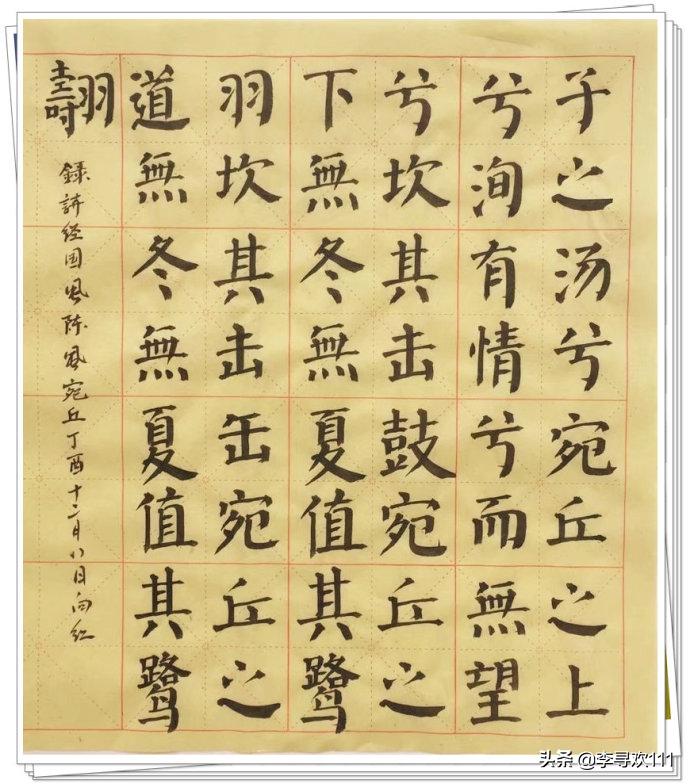 子之汤兮宛丘之上
兮洵有情兮而無望
兮坎其击鼓宛丘之
下無冬無夏值其鹭
羽坎其击缶宛丘之
道無冬無夏值其鹭
翿
録詩经国风陈风宛丘丁酉十二月八日向红
头条 @李寻欢111